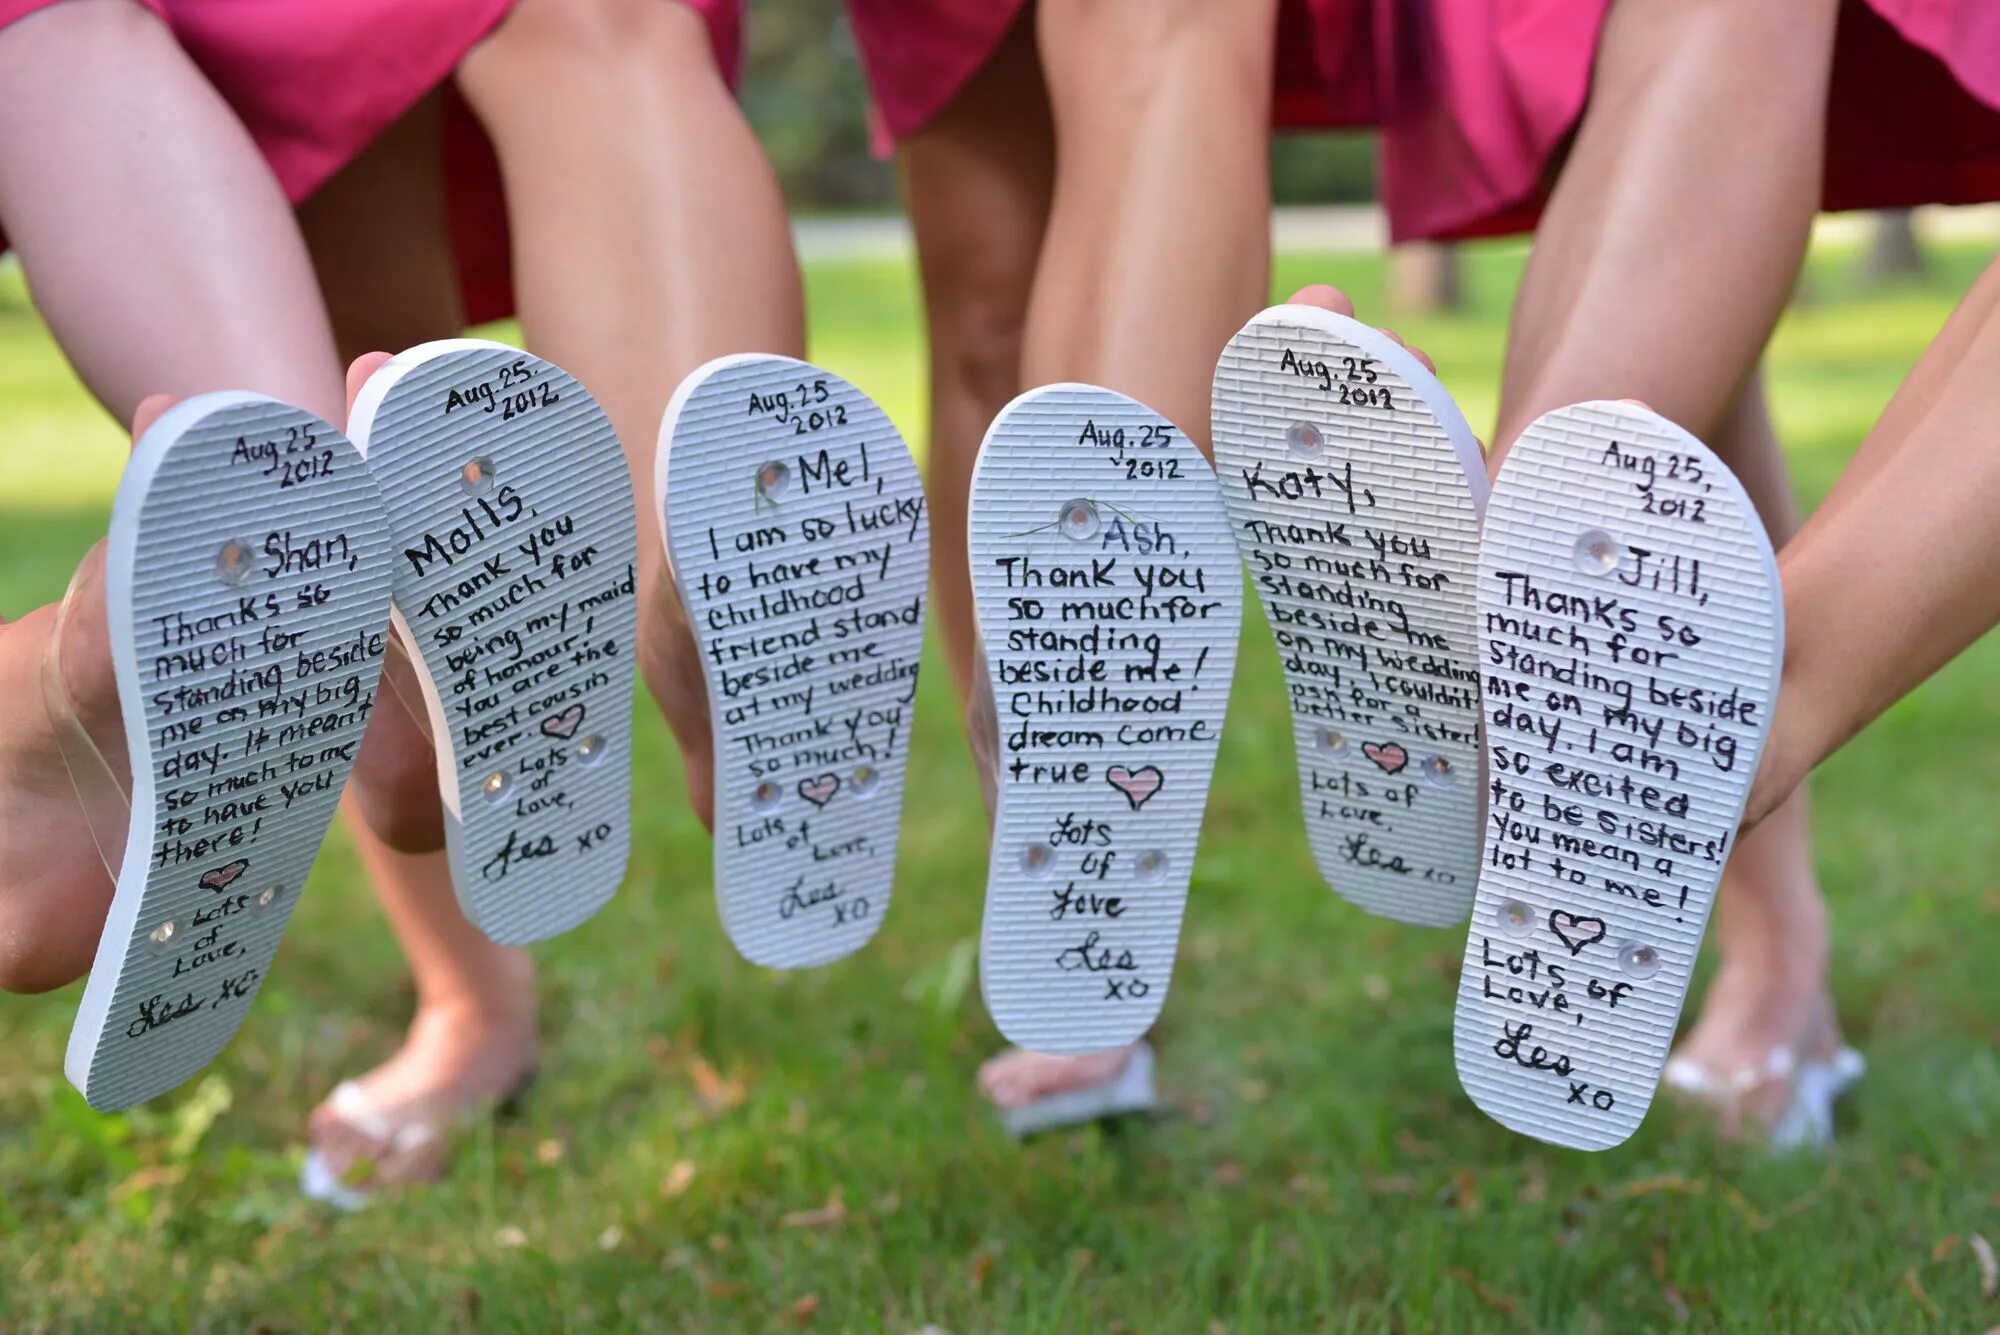 Aug 25
2012
Shan,
Thanks so
much for
standing beside
me on my big
day. It meant
so much to me
to have you
there!
Lots
of
Love,
Les xo
Aug. 25.
2012
Molls,
Thank you
so much for
being my maid
of honour!
You are the
best cousin
ever.
Lots
of
Love,
Les xo
Aug. 25
2012
Mel,
I am so lucky
to have my
childhood
friend stand
beside me
at my wedding
Thank you
so much!
Lots
of
Love,
Les
xo
Aug. 25
2012
Ash,
Thank you
so much for
standing
beside me!
Childhood
dream come
true
Lots
of
Love
Les
xo
Aug. 25
2012
Katy,
Thank you
so much for
standing
beside me
on my wedding
day. I couldn't
ask for a
better sister!
Lots of
Love,
Les xo
Aug 25,
2012
Jill,
Thanks so
much for
standing beside
me on my big
day. I am
so excited
to be sisters!
You mean a
lot to me!
Lots of
Love,
Les
xo